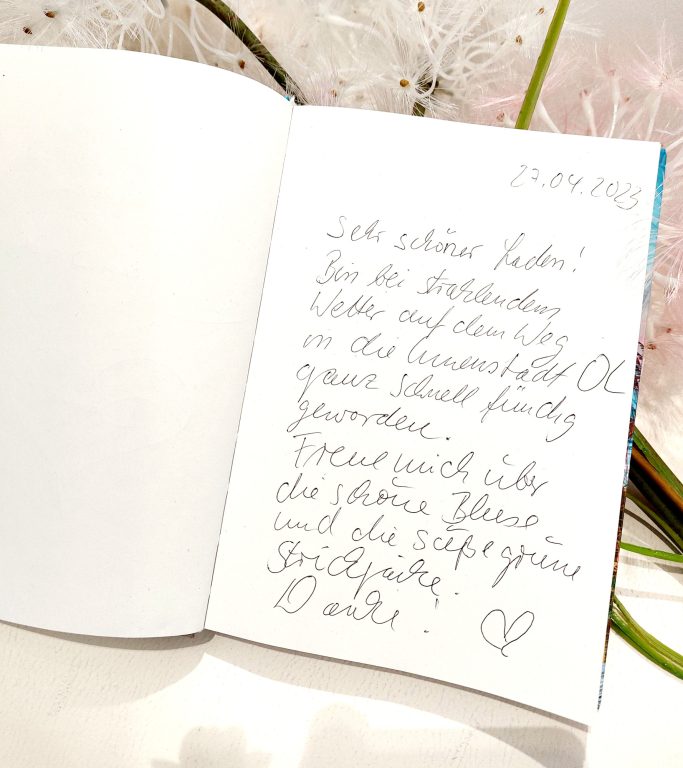 27.04.2023
Sehr schöner Laden!
Bin bei strahlendem
Wetter auf dem Weg
in die Innenstadt OL
ganz schnell fündig
geworden.
Freue mich über
die schöne Bluse
und die süße grüne
Strickjacke.
Danke!